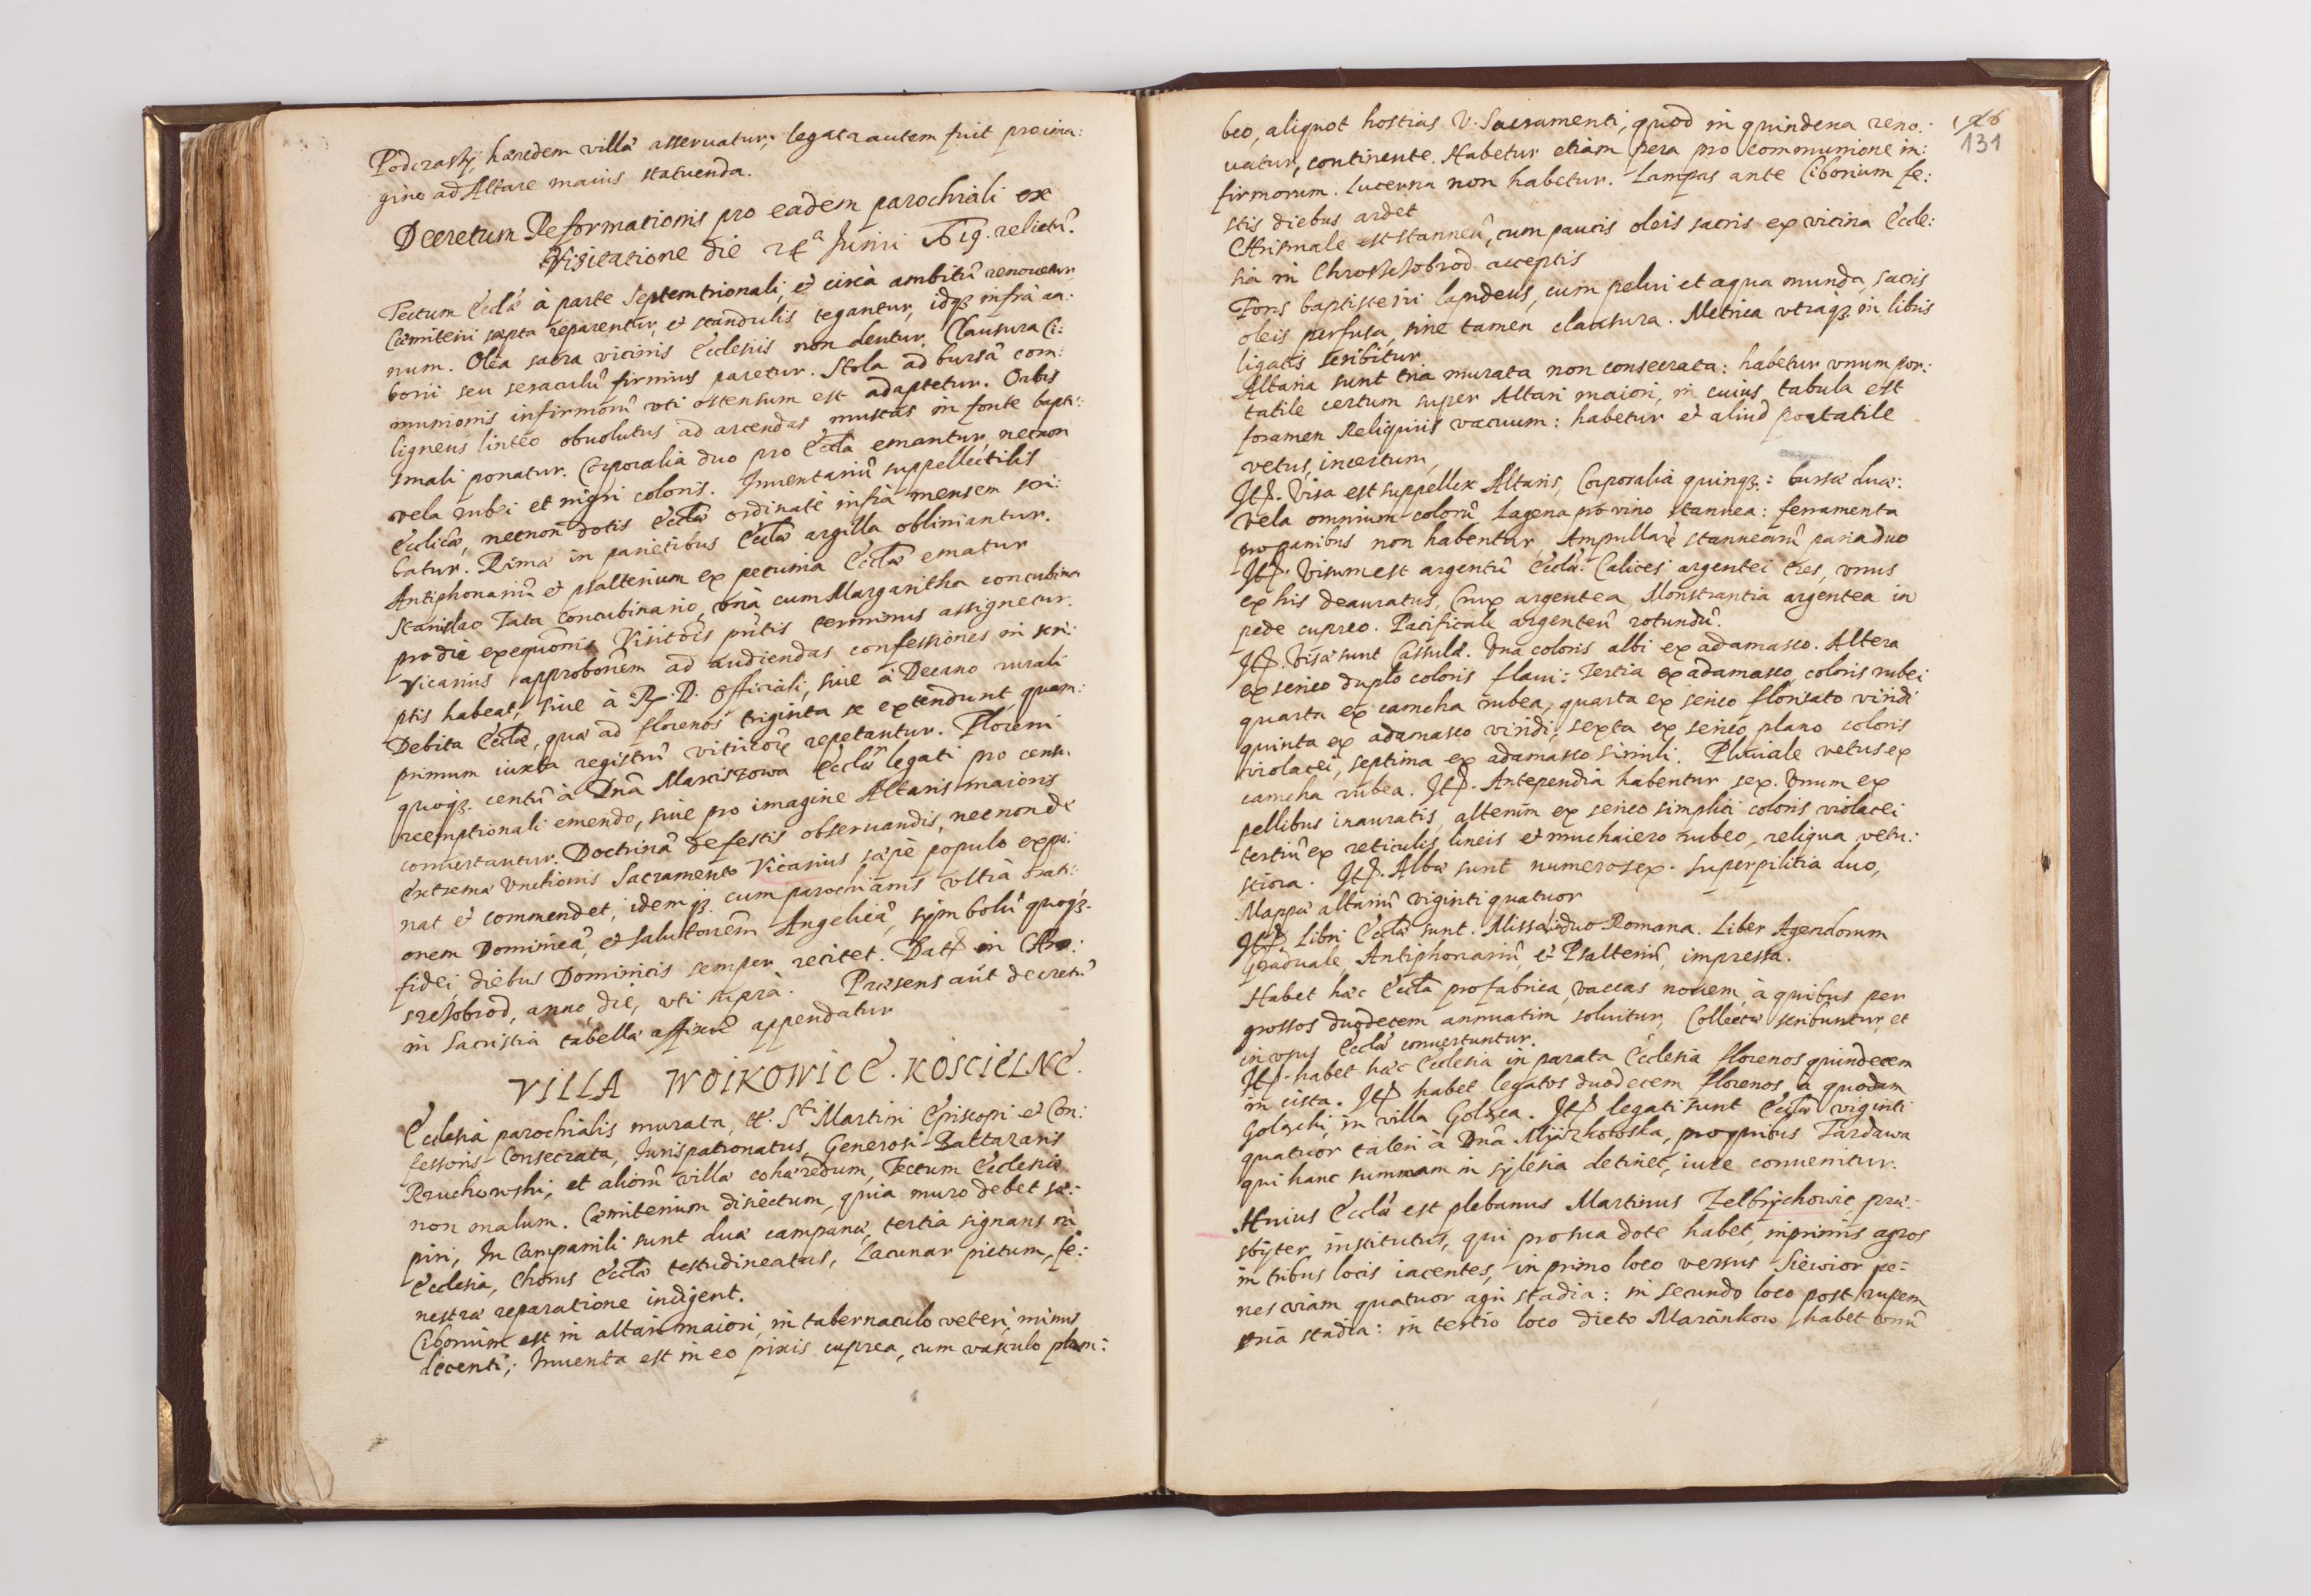 Podczasky, hæredem villæ asseruatur; legata autem fuit pro ima:
gine ad Altare maius statuenda.
Decretum Reformationis pro eadem parochiali ex
Visitatione die 24ª Junii relictũ.
Tectum Eccłæ à parte Septemtrionali, et circà ambitũ renouetur,
Cæmiterii sæpta reparentur, et scandulis tegantur, idqȝ infrà an:
num. Olea sacra vicinis Ecclesiis non dentur. Clausura Ci:
borii seu seraculũ firmius paretur. Stola ad bursã com:
munionis infirmorũ vti ostensum est adaptetur. Orbis
ligneus linteo obuolutus ad arcendas muscas in fonte bapti:
smali ponatur. Corporalia duo pro Eccła emantur, necnon
vela rubei et nigri coloris. Inuentariũ suppellectilis
Eccłicæ, necnon dotis Eccłæ ordinatè infra mensem scri:
batur. Rimæ in parietibus Eccłæ argilla obliniantur.
Antiphonariũ et psalterium ex pecunia Eccłæ ematur
Stanislao Tata Concubinario, vnà cum Margaritha concubina
pro die exequõnis Visitõis pñtis terminus assignetur.
Vicarius approbõnem ad audiendas confessiones in scri:
ptis habeat, siue à R. D. Officiali, siue à Decano rurali
Debita Eccłæ, quæ ad florenos triginta se extendunt, quam:
primum iuxta registrũ vitricorũ repetantur. Floreni
quoqȝ centũ à Dña Marciszowa Eccłæ legati pro censu
reemptionali emendo, siue pro imagine Altaris maioris
conuertantur. Doctrinã de festis obseruandis, necnon de
Extremæ Vnctionis Sacramento Vicarius sæpè populo expo:
nat et commendet, idemqȝ cum parochianis vltrà orati:
onem Dominicã, et salutõnem Angelicã, symbolũ quoqȝ
fidei diebus Dominicis semper recitet. Datȩ in Chro:
szczobrod, anno, die, vti suprà. Præsens aũt decretũ
in Sacristia tabellæ affixũ appendatur
VILLA WOIKOWICE. KOSCIELNE.
Ecclesia parochialis murata, tt. Sti Martini Episcopi et Con:
fessoris Consecrata, Jurispatronatus, Generosi Baltazaris
Rzuchowski, et aliorũ villæ cohæredum, Tectum Ecclesiæ
non malum. Cæmiterium disiectum, quia muro debet sæ:
piri, In Campanili sunt duæ campanæ, tertia signans in
Ecclesia, Chorus Eccłæ testudineatus, Lacunar pictum, fe:
nestræ reparatione indigent.
Ciborium est in altari maiori, in tabernaculo veteri, minus
decenti; Inuenta est in eo pixis cuprea, cum vasculo plum:
131
beo, aliquot hostias V. Sacramenti, quod in quindena reno:
uatur, continente. Habetur etiam pera pro communione in:
firmorum. Lucerna non habetur. Lampas ante Ciborium fe:
stis diebus ardet
Chrismale est stanneũ, cum paucis oleis sacris ex vicina Eccle:
sia in Chroszczobrod acceptis
Fons baptisterii lapideus, cum pelui et aqua munda, sacris
oleis perfusa, sine tamen clausura. Metrica vtraqȝ in libris
ligatis scribitur
Altaria sunt tria murata non consecrata: habetur vnum por:
tatile certum super Altari maiori, in cuius tabula est
foramen Reliquiis vacuum: habetur et aliud portatile
vetus, incertum,
Itȩ. Visa est suppellex Altaris, Corporalia quinqȝ: bursæ duæ:
vela omnium colorũ. Lagena pro vino stannea: ferramenta
pro panibus non habentur, Ampullarũ stannearũ paria duo
Itȩ. Visum est argentũ Eccłæ. Calices argentei tres, vnus
ex his deauratus, Crux argentea, Monstrantia argentea in
pede cupreo. Pacificale argenteũ rotundũ.
Itȩ. Visæ sunt Casulæ. Vna coloris albi ex adamasco. Altera
ex serico duplo coloris flaui: Tertia ex adamasco, coloris rubei
quarta ex camcha rubea, quarta ex serico florisato viridi
quinta ex adamasco viridi, sexta ex serico plano coloris
violacei, septima ex adamasco simili. Pluuiale vetus ex
camcha rubea. Itȩ. Antependia habentur sex. Vnum ex
pellibus inauratis, alterũm ex serico simplici coloris violacei
tertiũ ex reticulis lineis et muchaiero rubeo, reliqua vetu:
stiora. Itȩ. Albæ sunt numero sex. Superpilitia duo,
Mappæ altariũ viginti quatuor
Itȩ. Libri Eccłæ sunt. Missalia duo Romana. Liber Agendorum
Graduale, Antiphonariũ, et Psalteriũ, impressa.
Habet hæc Eccła pro fabrica, vaccas nouem, à quibus per
grossos duodecem annuatim soluitur, Collectæ scribuntur, et
in vsus Eccłæ conuertuntur.
Itȩ. habet hæc Ecclesia in parata Ecclesia florenos quindecem
in cista. Itȩ habet legatos duodecem florenos à quodam
Golącki, in villa Goląca. Itȩ legati sunt Eccłæ viginti
quatuor taleri à Dña pro quibus Tardawa
qui hanc summam in sylesia detinet, iure conuenitur.
Huius Eccłæ est plebanus Martinus Zelbrychowic, præ:
sbyter institutus, qui pro sua dote habet, inprimis agros
in tribus locis iacentes, in primo loco versus Siewior pe:
nes viam quatuor agri stadia: in secundo loco post rupem
tria stadia: in tertio loco dicto Marcinkow habet vnũ